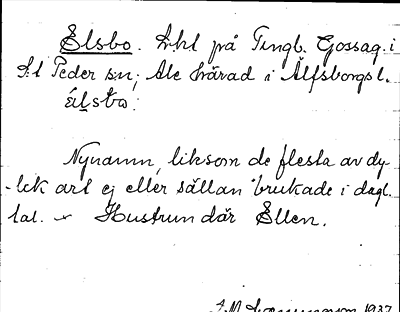 Elsbo. Lht på Tingb. Gossag. i
St Peder sn; Ale härad i Älfsborgs l.
élsbo.
Nynamn, liksom de flesta av dy-
-lik art ej eller sällan brukade i dagl.
tal. Hustrun där Ellen.
1937